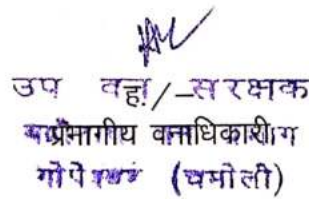 उप वन ह./- संरक्षक
प्रभागीय वनाधिकारी
गोपेश्वर (चमोली)